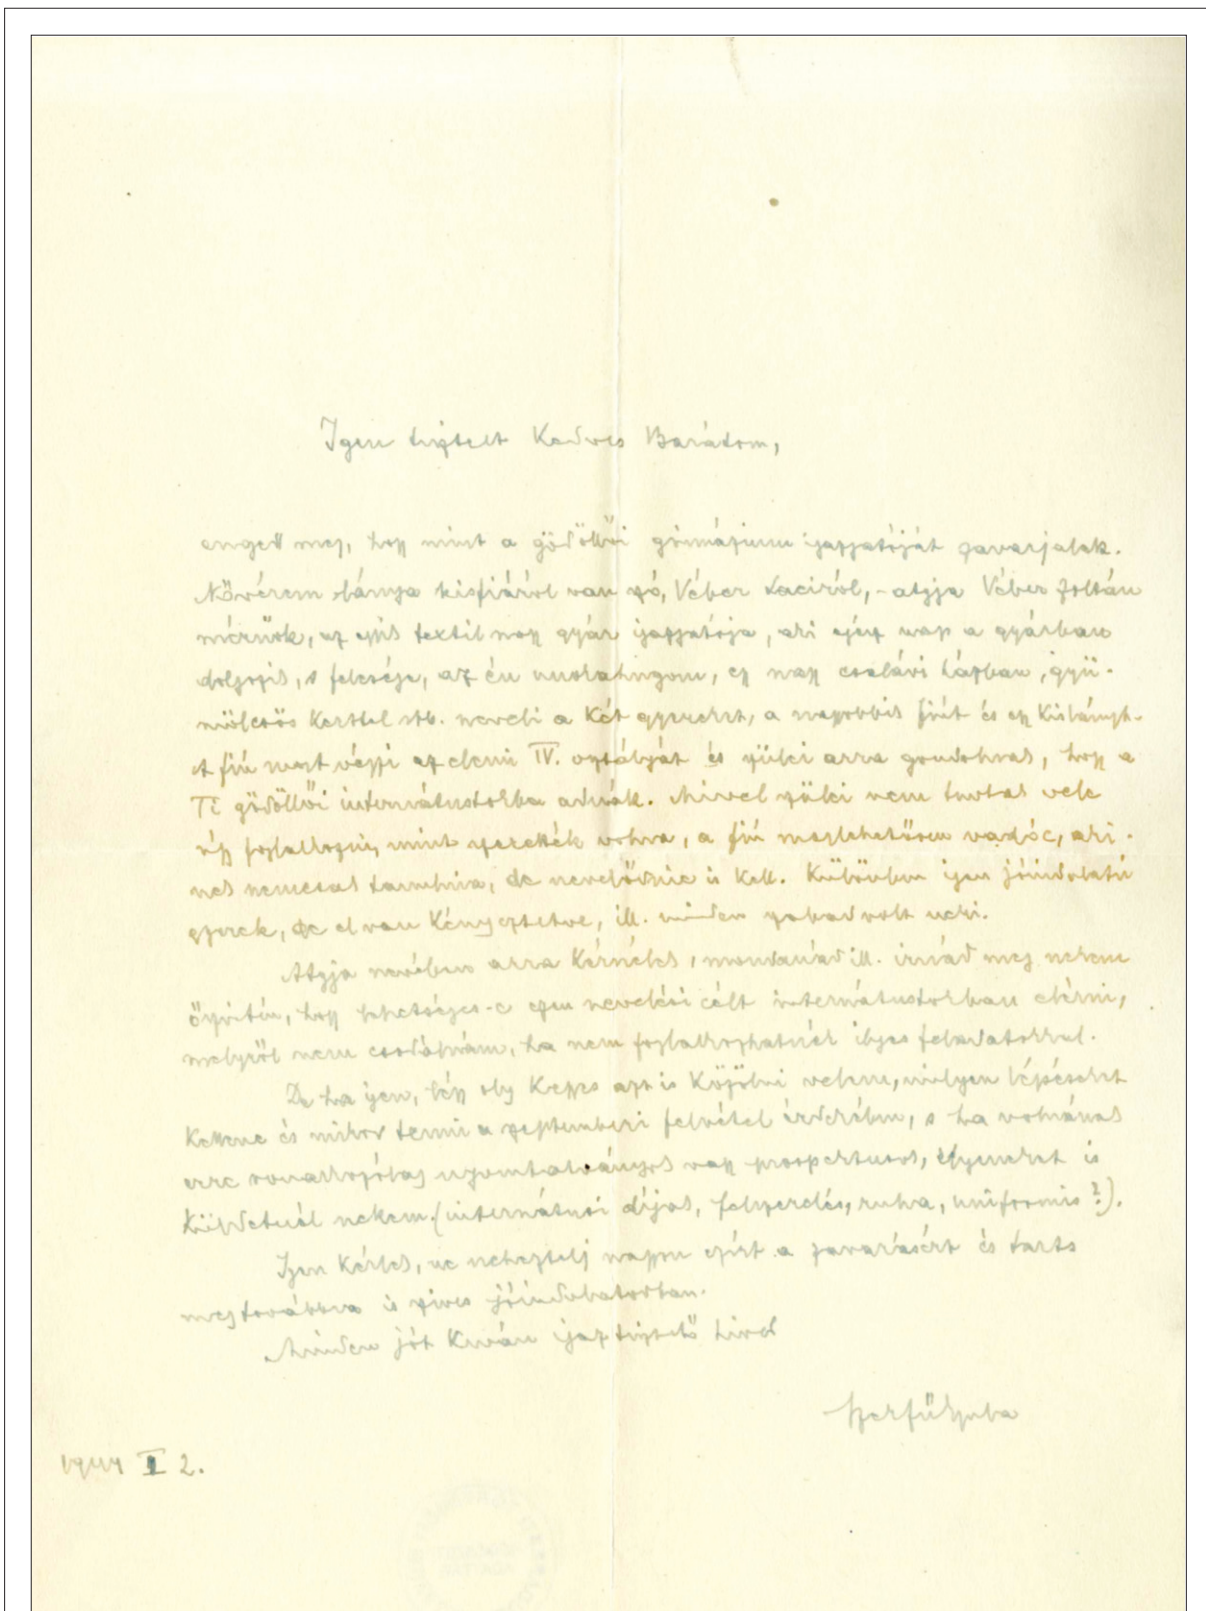 Igen tisztelt Kedves Barátom,
engedd meg, hogy mint a gödöllői gimnázium igazgatóját zavarjalak.
Nővérem lánya kisfiáról van szó, Véber Laciról, - atyja Véber Zoltán
mérnök, az textil nagy gyár igazgatója, aki egész nap a gyárban
dolgozik, s felesége, az én unokahúgom, egy nagy családi házban, gyü-
mölcsös kerttel stb. neveli a két gyereket, a nagyobbik fiút és egy kislányt.
A fiú most végzi az elemi IV. osztályát és szülei arra gondolnak, hogy a
Ti gödöllői internátustokba adnák. Mivel szülei nem tudtak vele
úgy foglalkozni, mint szerették volna, a fiú meglehetősen vadóc, aki-
nek nemcsak tanulnia, de nevelődnie is kell. Különben igen jóindulatú
gyerek, de el van kényeztetve, ill. minden szabad volt neki.
Atyja nevében arra kérnélek, mondanád ill. írnád meg nekem
őszintén, hogy lehetséges-e ezen nevelési célt internátustokban elérni,
melyről nem csodálnám, ha nem foglalkozhatnék ilyes feladatokkal.
De ha igen, légy oly kegyes azt is közölni velem, milyen lépéseket
kellene és mikor tenni a szeptemberi felvétel érdekében, s ha volnának
erre vonatkozólag nyomtatványok vagy prospektusok, ilyeneket is
küldetnél nekem. (internátusi díjak, felszerelés, ruha, uniformis?).
Igen kérlek, ne neheztelj nagyon ezért a zavarásért és tarts
meg továbbra is szíves jóindulatodban.
Minden jót kíván igaz tisztelő híved
Szekfű Gyula
1944 I 2.